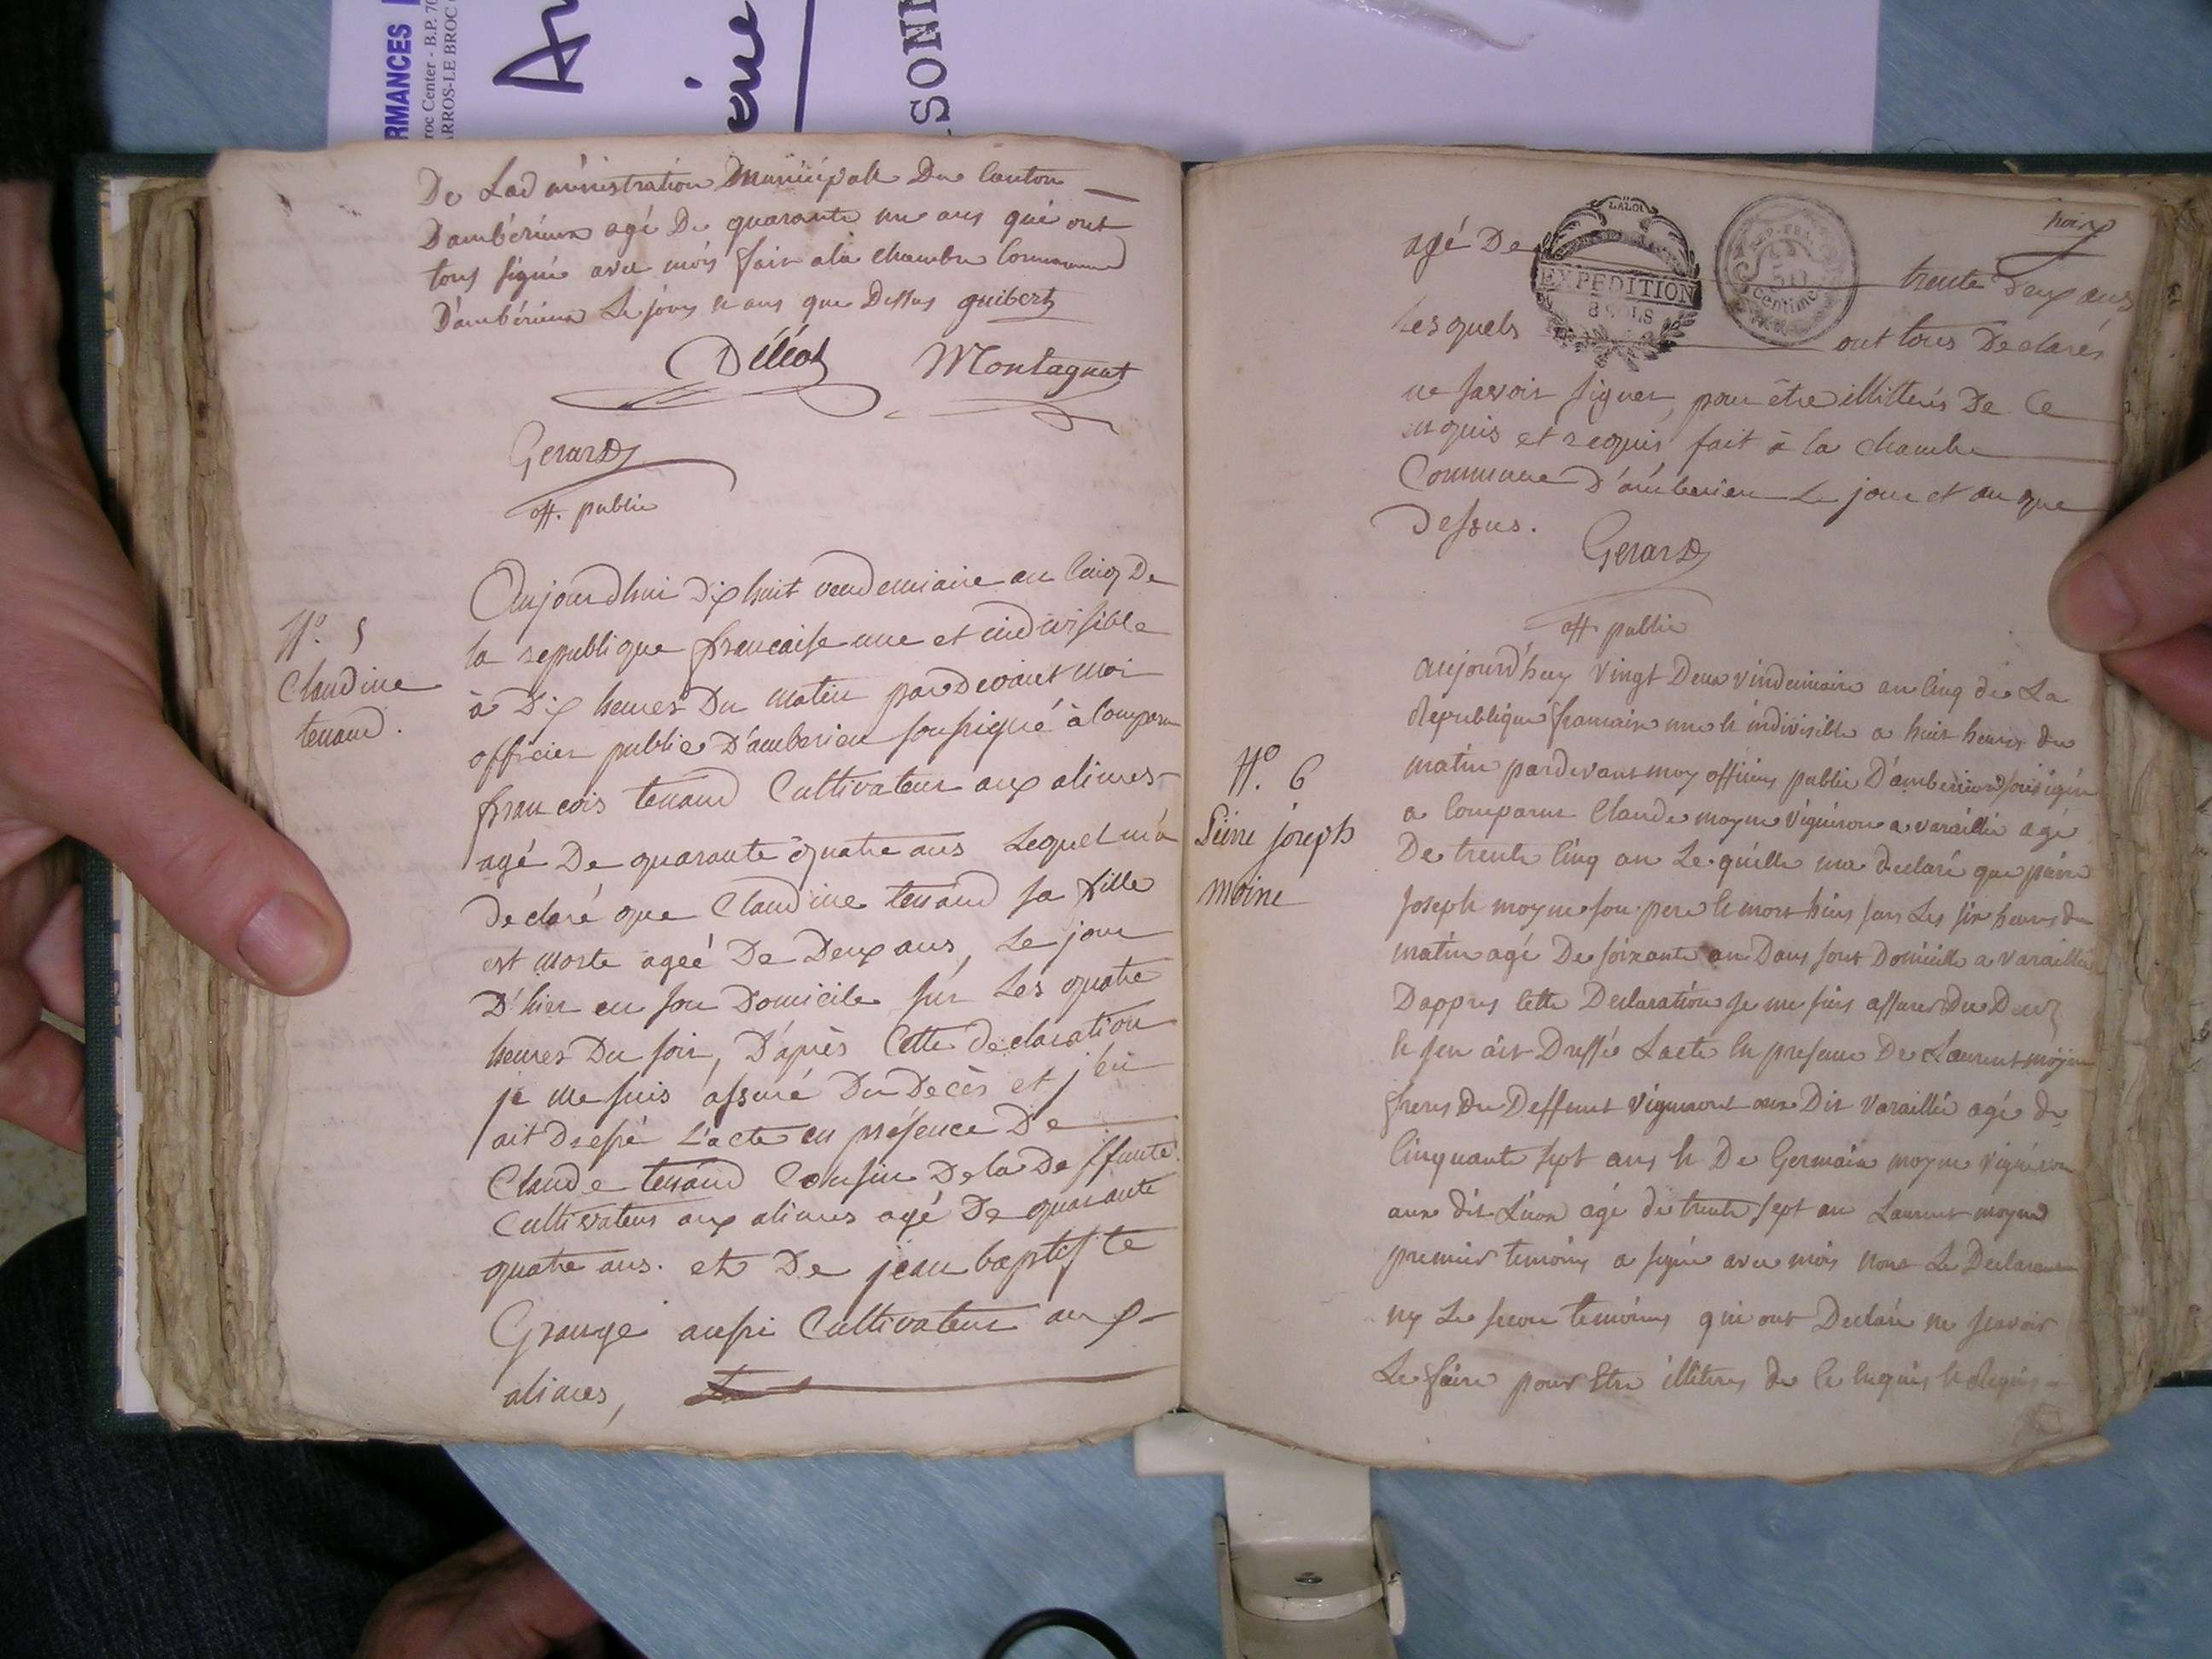 RMANCES
roc Center - B.P. 70
ARROS-LE BROC
SONN
De Lad ministration Municipale Du Canton
Dambérieux agé De quarante un ans qui ont
tous signé avec mois fait ala Chambre Commune
D'ambérieux Le jour et ans que Dessus guibert
Dilliot Montagnat
Gerard
off. public
N.º 5
Claudine
tenand.
Aujourdhui Dix huit vendemiaire an Cinq De
la republique francaise une et indivisible
à Dix heures Du matin pardevant moi
officier public D'amberieu soussigné à Comparu
francois tenand Cultivateur aux alimes
agé De quarante quatre ans Lequel m'a
declaré que Claudine tenand sa fille
est morte ageé De Deux ans, Le jour
D'hier en son Domicile sur Les quatre
heures Du soir, D'après Cette declaration
je me suis assuré Du Decès et j'en
ait dressé L'acte en présence De
Claude tenand Cousin De la Deffunte
Cultivateur aux alimes agé De quarante
quatre ans. et De jean baptiste
Grange aussi Cultivateur aux
alimes,
agé De trente deux ans
LA LOI
EXPEDITION
8 SOLS
REP. FRA.
50
Centime
Lesquels ont tous Declarés
ne savoir signer, pour être illitterés De Ce
enquis et requis, fait à la Chambre
Commune D'amberieu Le jour et an que
dessus.
Gerard
off. public
N.º 6
Pierre joseph
moine
aujourd'huy vingt Deux vindemiaire an Cinq de La
Republique francaise une et indivisible a huit heures du
matin pardevant moy officier public D'amberieux sousigné
a Comparu Claude moyne vigneron a varaillie agé
De trente Cinq an Le quelle ma declaré que pierre
Joseph moyne son pere et mort hier sur Les six heures du
matin agé De soixante an Dans sont Domicille a varaillie
Dapprès Cette Declaration Je me suis assuré Du Decez
et jen ait Dressé Lacte En presence De Laurent moyne
freres Du Deffunt vigneront aux Dit varaillie agé de
Cinquante sept ans et De Germain moyne vigneron
aux dit Lieux agé de trente sept an Laurent moyne
premier temoins a signé avec mois nont Le Declarant
ny Le second temoins qui ont Declaré ne scavoir
Le faire pour Etre illitérés de Ce Enquis et Requis